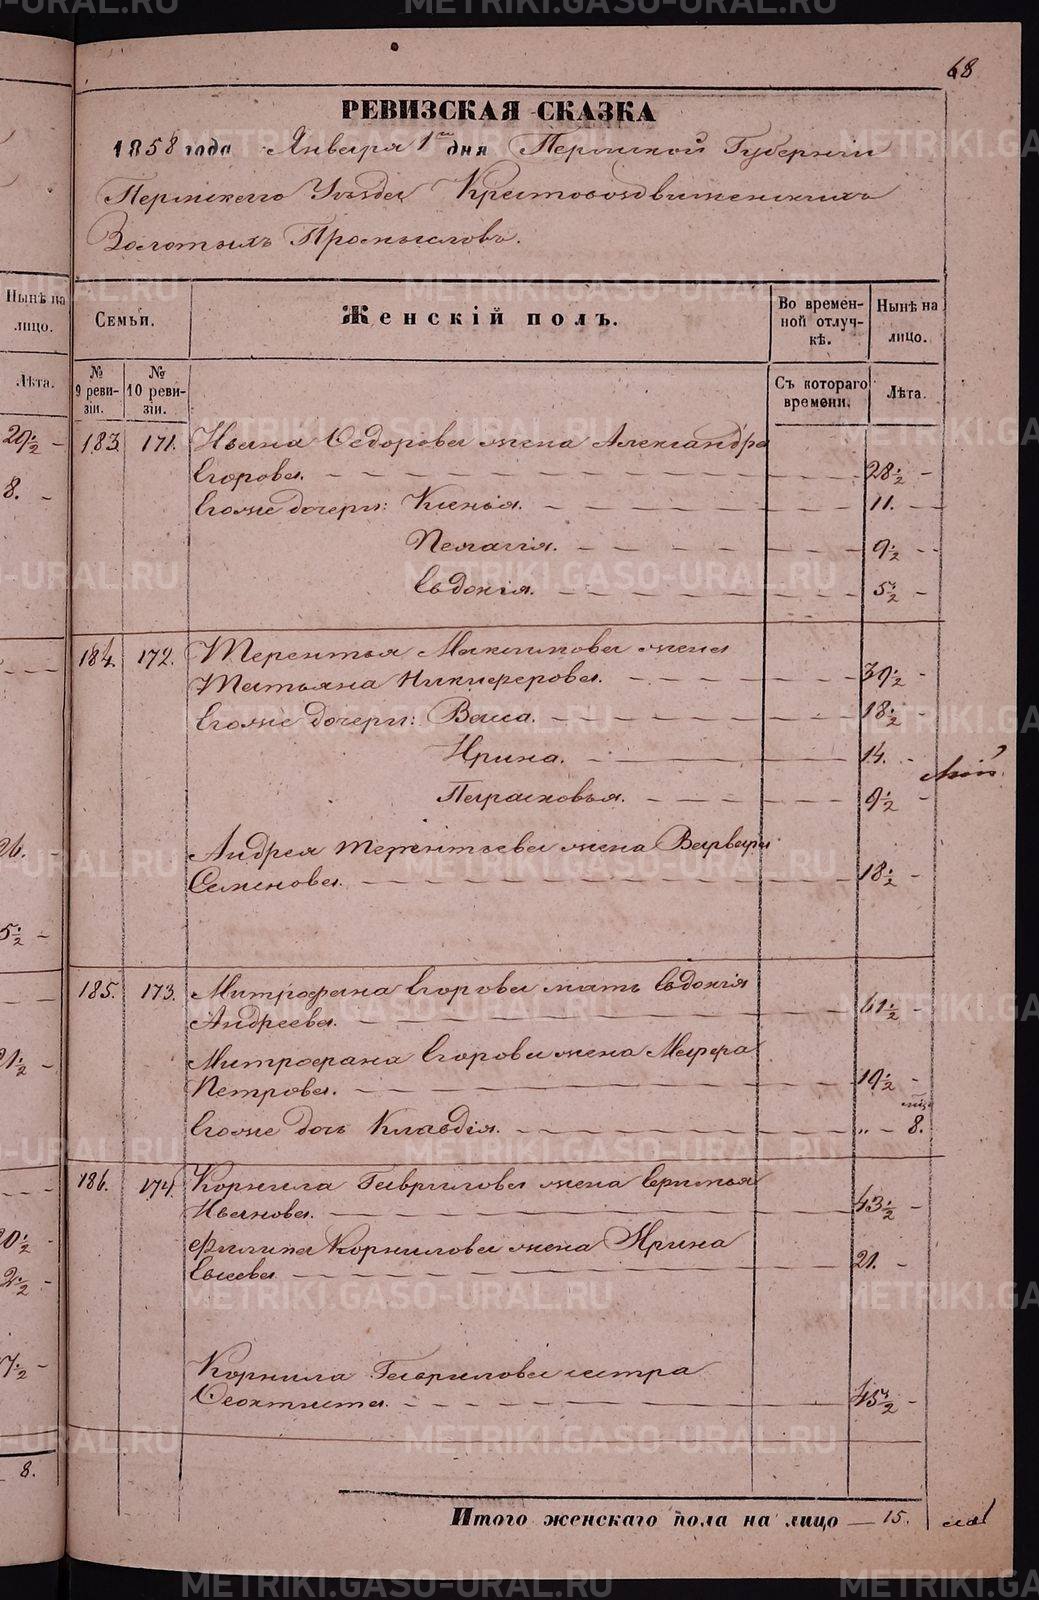 68
РЕВИЗСКАЯ СКАЗКА
1858 года Января 1го дня Пермской Губерніи
Пермскаго Уѣзда Крестовоздвиженскихъ
Золотыхъ Промысловъ.
Нынѣ на лицо.
Семьи.
Женскій полъ.
Во временной отлучкѣ.
Нынѣ на лицо.
Лѣта.
№ 9 ревизіи.
№ 10 ревизіи.
Съ котораго времени.
Лѣта.
183. 171. Ивана Ѳедорова жена Александра
Егорова. 28½
Егоже дочери: Ксенья. 11.
Пелагія. 9½
Евдокія. 5½
184. 172. Терентья Максимова жена
Татьяна Никиферова. 39½
Егоже дочери: Васса. 18½
Ирина. 14.
Парасковья. 9½
Андрея Терентьева жена Варвара
Семенова. 18½
185. 173. Митрофана Егорова мать Евдокія
Андреева. 61½
Митрофана Егорова жена Марфа
Петрова. 19½
Егоже дочь Клавдія. „ 8.
186. 174. Корнила Гаврилова жена Ефимья
Иванова. 43½
Филипа Корнилова жена Ирина
Евсеева. 21.
Корнила Гаврилова сестра
Ѳеоктиста. 45½
Итого женскаго пола на лицо — 15.
29½
8.
26.
5½
21½
20½
2½
8.
METRIKI.GASO-URAL.RU